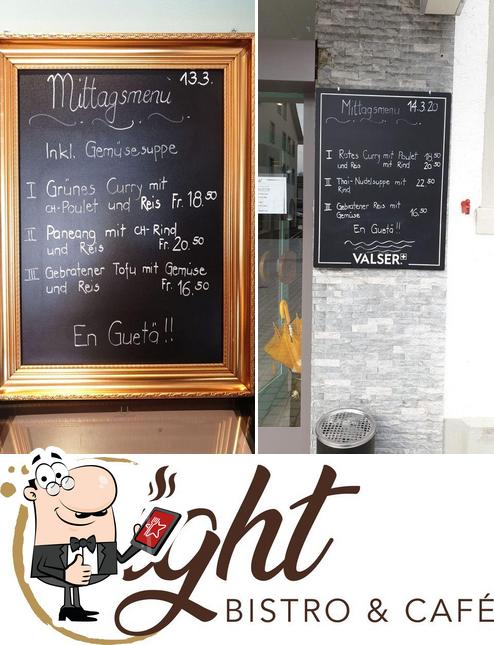 Mittagsmenü 13.3.
Inkl. Gemüsesuppe
I Grünes Curry mit
CH-Poulet und Reis Fr. 18.50
II Paneang mit CH-Rind
und Reis Fr. 20.50
III Gebratener Tofu mit Gemüse
und Reis Fr. 16.50
En Guetä!!
Mittagsmenü 14.3.20
I Rotes Curry mit Poulet 18.50
und Reis mit Rind 20.50
II Thai-Nudelsuppe mit 22.50
Rind
III Gebratener Reis mit
Gemüse 16.50
En Guetä!!
VALSER
ght
BISTRO & CAFÉ